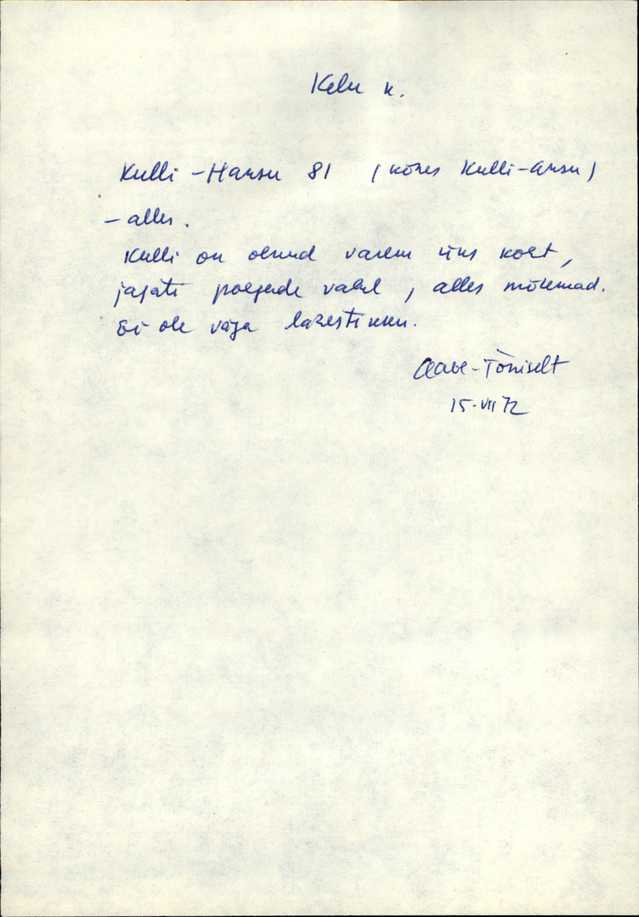 Kelu k.
Kulli-Hansu 81 (kõnes Kulli-Ansu)
- alles.
Kulli on olnud varem üks koht,
jagati poegade vahel, alles mõlemad.
Ei ole väga lahestikku.
Aabe-Tõniselt
15.VII 72